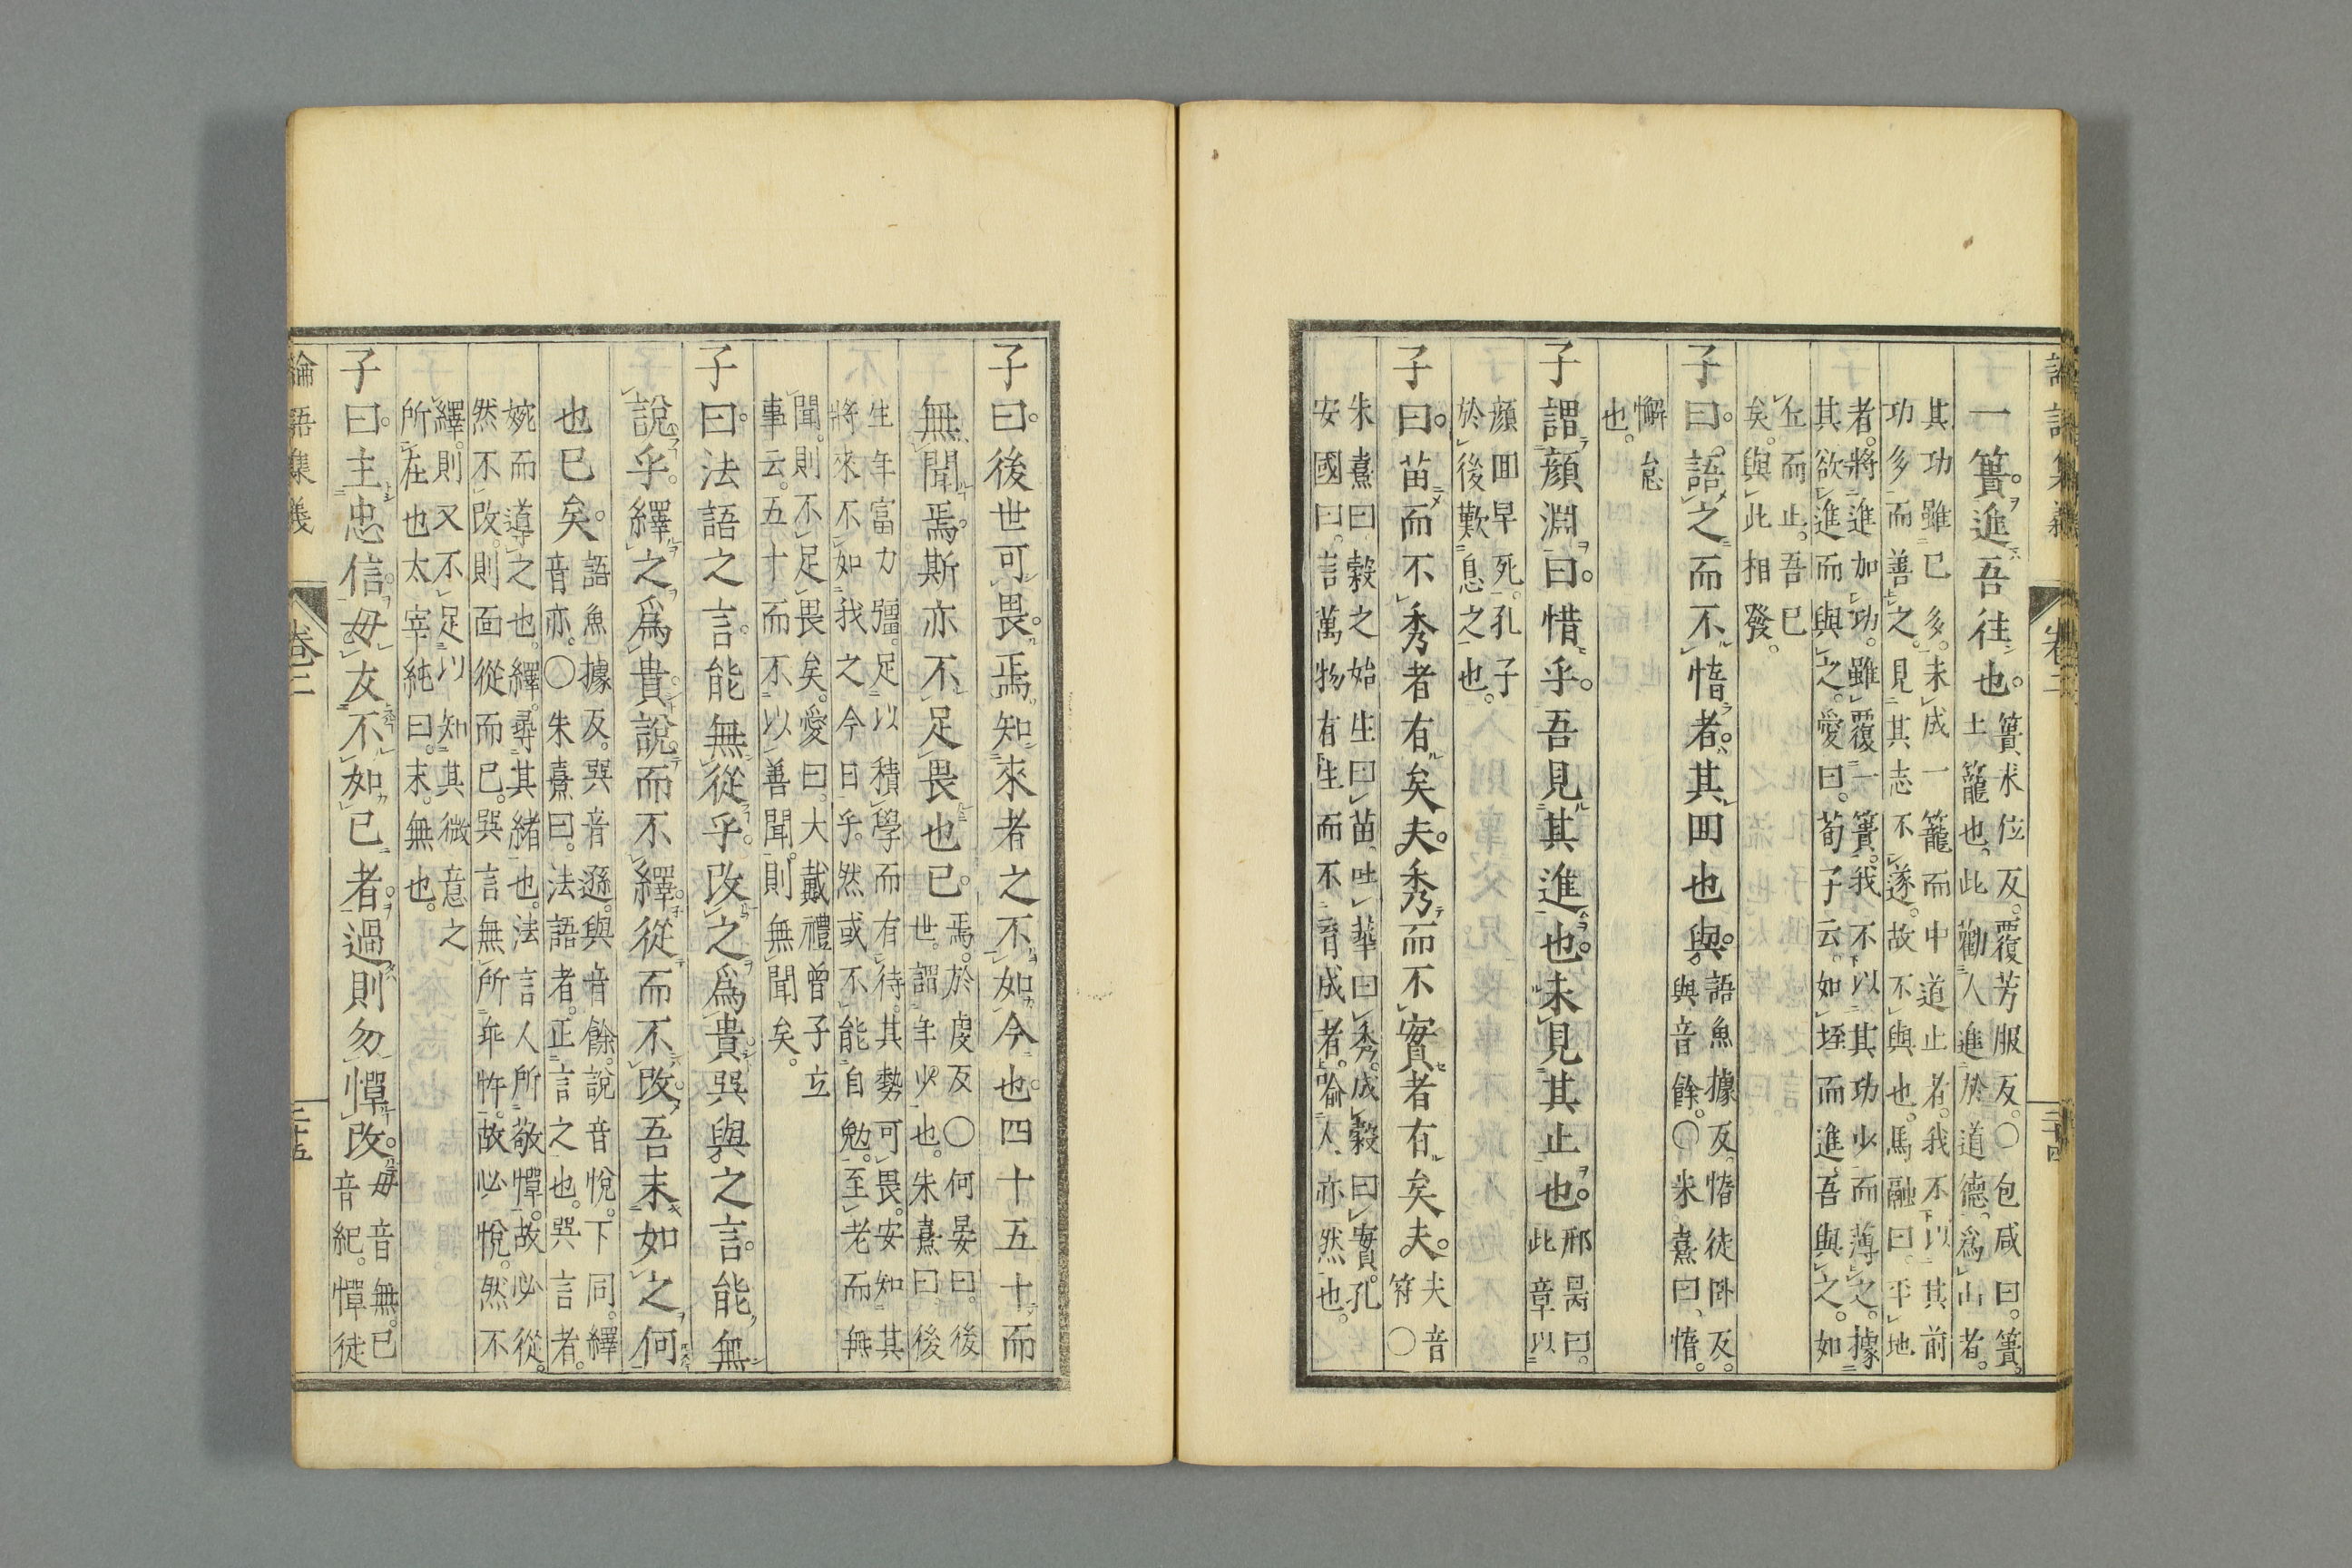 論語集義　卷二　三十四
一簣。進吾往也。
簣求位反。覆芳服反。○包咸曰。簣。
土籠也。此勸人進於道德。爲山者。
其功雖已多。未成一籠而中道止者。我不以其前
功多而善之。見其志不遂。故不與也。馬融曰。平地
者。將進加功。雖覆一簣。我不以其功少而薄之。據
其欲進而與之。愛曰。荀子云。如垤而進吾與之。如
丘而止。吾已
矣。與此相發。
子曰。語之而不惰者。其回也與。
語魚據反。惰徒卧反。
與音餘。○朱熹曰、惰。
懈怠
也。
子謂顏淵曰。惜乎。吾見其進也。未見其止也。
邢昺曰。
此章以
顏回早死。孔子
於後歎息之也。
子曰。苗而不秀者有矣夫。秀而不實者有矣夫。
夫音
符○
朱熹曰。穀之始生曰苗。吐華曰秀。成穀曰實。孔
安國曰。言萬物有生而不育成者。喻人亦然也。
子曰。後世可畏。焉知來者之不如今也。四十五十而
無聞焉。斯亦不足畏也已。
焉。於虔反○何晏曰。後
世。謂年少也。朱熹曰。後
生年富力彊。足以積學而有待。其勢可畏。安知其
將來不如我之今日乎。然或不能自勉。至老而無
聞。則不足畏矣。愛曰。大戴禮曾子立
事云。五十而不以善聞。則無聞矣。
子曰。法語之言。能無從乎。改之爲貴。巽與之言。能無
說乎。繹之爲貴。說而不繹。從而不改。吾末如之何
也已矣。
語魚據反。巽音遜。與音餘。說音悅。下同。繹
音亦。○朱熹曰。法語者。正言之也。巽言者。
婉而導之也。繹。尋其緒也。法言人所敬憚。故必從。
然不改。則面從而已。巽言無所乖忤。故必悅。然不
繹。則又不足以知其微意之
所在也太宰純曰。末。無也。
子曰。主忠信。毋友不如已者。過則勿憚改。
毋音無。已
音紀。憚徒
論語集義　卷二　三十五